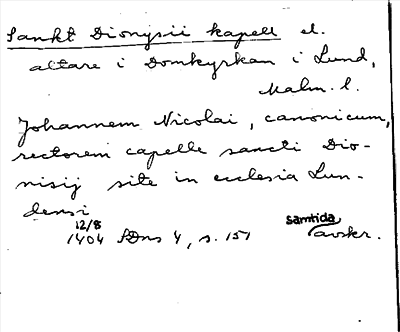 Sankt Dionysii kapell el.
altare i Domkyrkan i Lund,
Malm. l.
Johannem Nicolai, canonicum,
rectorem capelle sancti Dio-
nisij site in ecclesia Lun-
densi
12/8
1404 SDns 4, s. 151 samtida avskr.